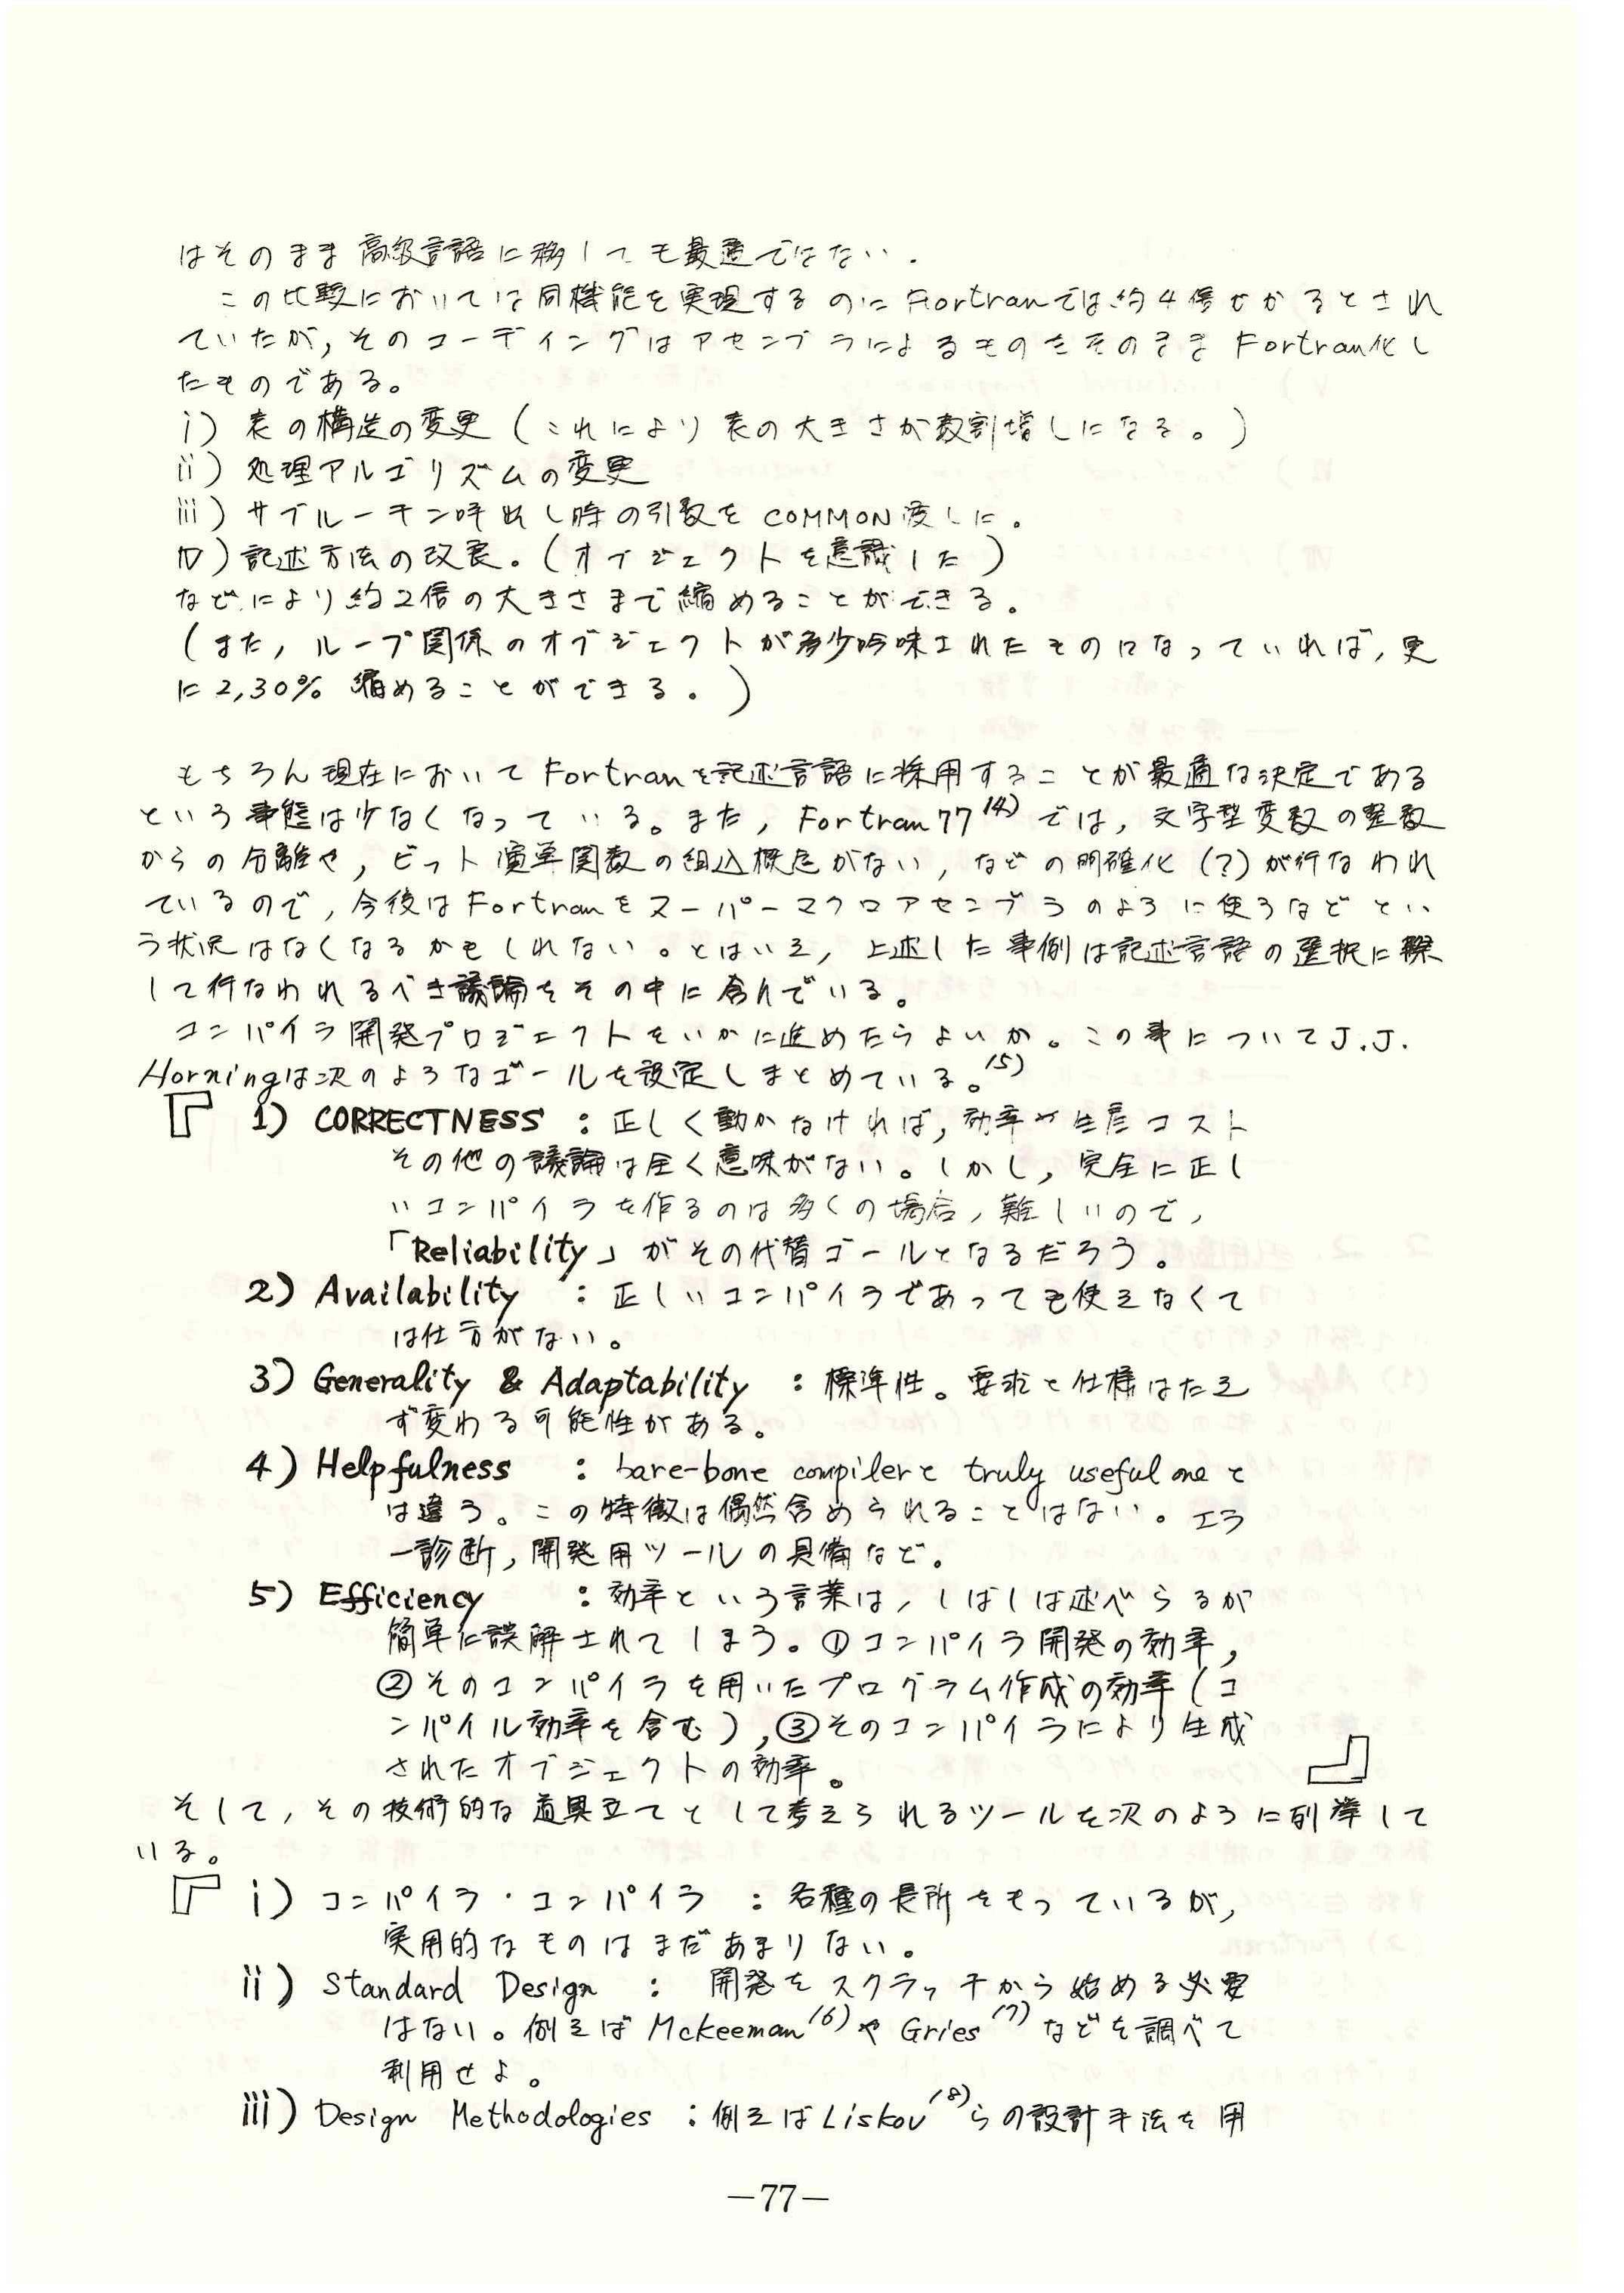 はそのまま高級言語に移しても最適ではない.
この比較においては同機能を実現するのにFortranでは約4倍もかかるとされ
ていたが,そのコーディングはアセンブラによるものをそのままFortran化し
たものである。
i) 表の構造の変更(これにより表の大きさが数割増しになる。)
ii) 処理アルゴリズムの変更
iii) サブルーチン呼出し時の引数をCOMMON渡しに。
iv) 記述方法の改良。(オブジェクトを意識した)
などにより約2倍の大きさまで縮めることができる。
(また,ループ関係のオブジェクトが多少吟味されたものになっていれば,更
に2,30%縮めることができる.)
もちろん現在においてFortranを記述言語に採用することが最適な決定である
という事態は少なくなっている。また,Fortran77(4)では,文字型変数の整数
からの分離や,ビット演算関数の組込概念がない,などの明確化(?)が行なわれ
ているので,今後はFortranをスーパーマクロアセンブラのように使うなどとい
う状況はなくなるかもしれない。とはいえ,上述した事例は記述言語の選択に際
して行なわれるべき議論をその中に含んでいる。
コンパイラ開発プロジェクトをいかに進めたらよいか。この事についてJ.J.
Horningは次のようなゴールを設定しまとめている。(5)
『 1) CORRECTNESS : 正しく動かなければ,効率や生産コスト
その他の議論は全く意味がない。しかし,完全に正し
いコンパイラを作るのは多くの場合,難しいので,
「Reliability」がその代替ゴールとなるだろう。
2) Availability : 正しいコンパイラであっても使えなくて
は仕方がない。
3) Generality & Adaptability : 標準性。要求と仕様はたえ
ず変わる可能性がある。
4) Helpfulness : bare-bone compilerと truly useful oneと
は違う。この特徴は偶然含められることはない。エラ
ー診断,開発用ツールの具備など。
5) Efficiency : 効率という言葉は,しばしば述べらるが
簡単に誤解されてしまう。①コンパイラ開発の効率,
②そのコンパイラを用いたプログラム作成の効率(コ
ンパイル効率を含む),③そのコンパイラにより生成
されたオブジェクトの効率。 』
そして,その技術的な道具立てとして考えられるツールを次のように列挙して
いる。
『 i) コンパイラ・コンパイラ : 各種の長所をもっているが,
実用的なものはまだあまりない。
ii) Standard Design : 開発をスクラッチから始める必要
はない。例えばMckeeman(6)やGries(7)などを調べて
利用せよ。
iii) Design Methodologies : 例えばLiskov(8)らの設計手法を用
—77—